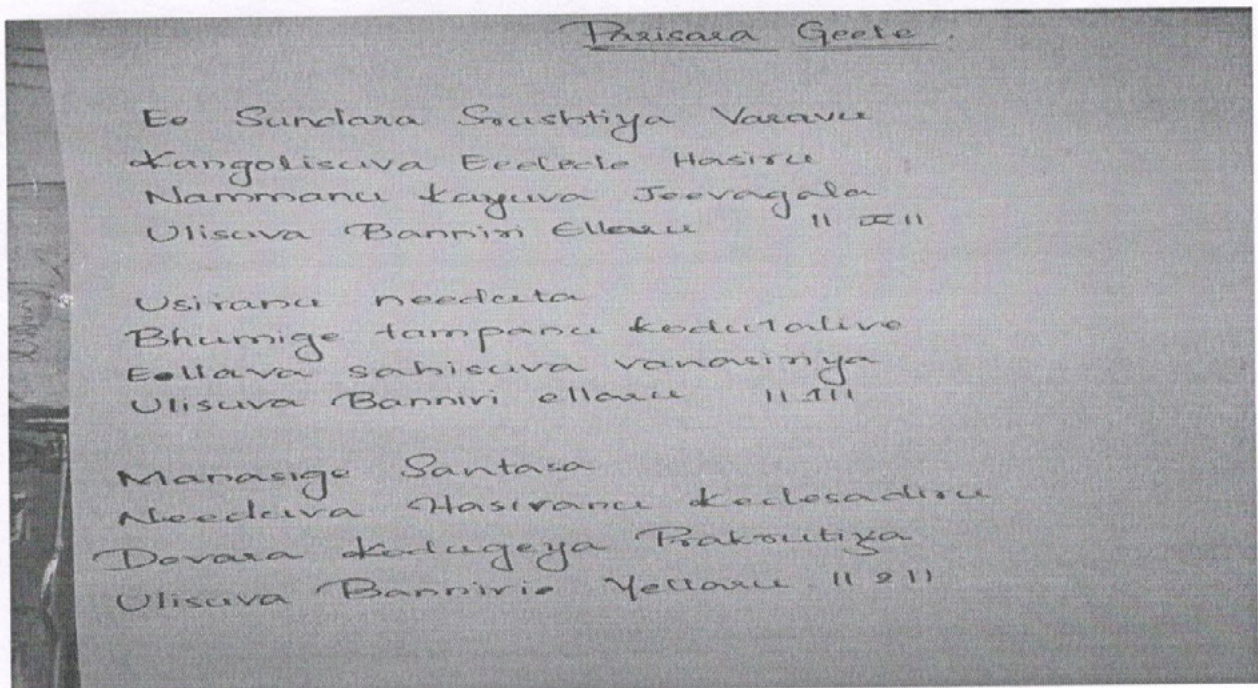 Parisara Geete.
Ee Sundara Sroushtiya Varavu
Kangolisuva Ecclede Hasiru
Nammanu kayuva Jeevagala
Ulisuva Banniri Ellaru "ಪ"
Usiranu needuta
Bhumige tampanu kodutalive
Eellava sahisuva vanasiriya
Ulisuva Banniri ellaru "1"
Manasige Santasa
Needuva Hasiranu kedesadiru
Devara kodugeya Prakrutiya
Ulisuva Bannirie Yellaru "2"